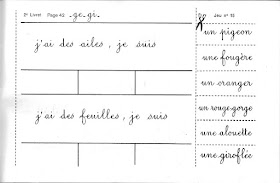 2e Livret Page 42 .ge.gi.
Jeu n° 18
j'ai des ailes, je suis
j'ai des feuilles, je suis
un pigeon
une fougère
un oranger
un rouge-gorge
une alouette
une giroflée